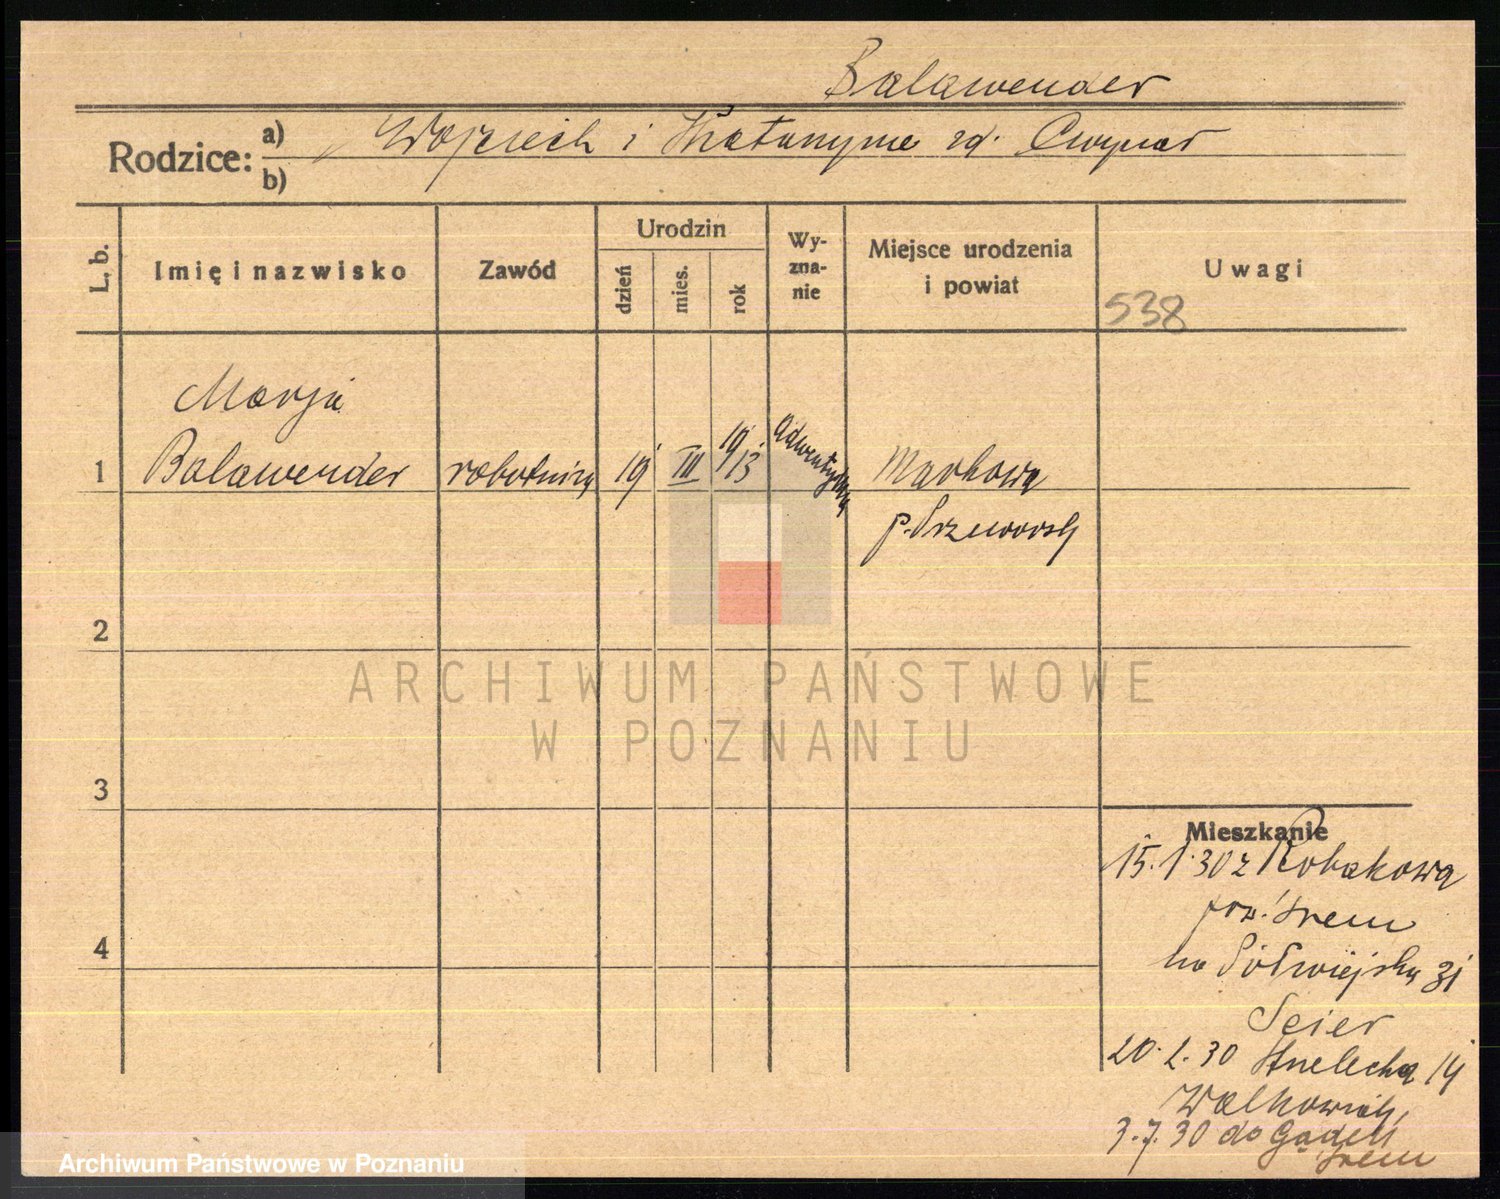 Balawender
Rodzice: a) Wojciech i Katarzyna zd.
b)
L. b.
Imię i nazwisko
Zawód
Urodzin
dzień
mies.
rok
Wy-
zna-
nie
Miejsce urodzenia
i powiat
Uwagi
538
Marja
1 Balawender robotnica 19 III 19/13 Markowa
p. Przeworsk
2
ARCHIWUM PAŃSTWOWE
W POZNANIU
3
Mieszkanie
15.1.30 z Robakowa
pow. Śrem
na Półwiejską 31
Seier
20.2.30 Strzelecka 14
3.7.30 do
Śrem
4
Archiwum Państwowe w Poznaniu